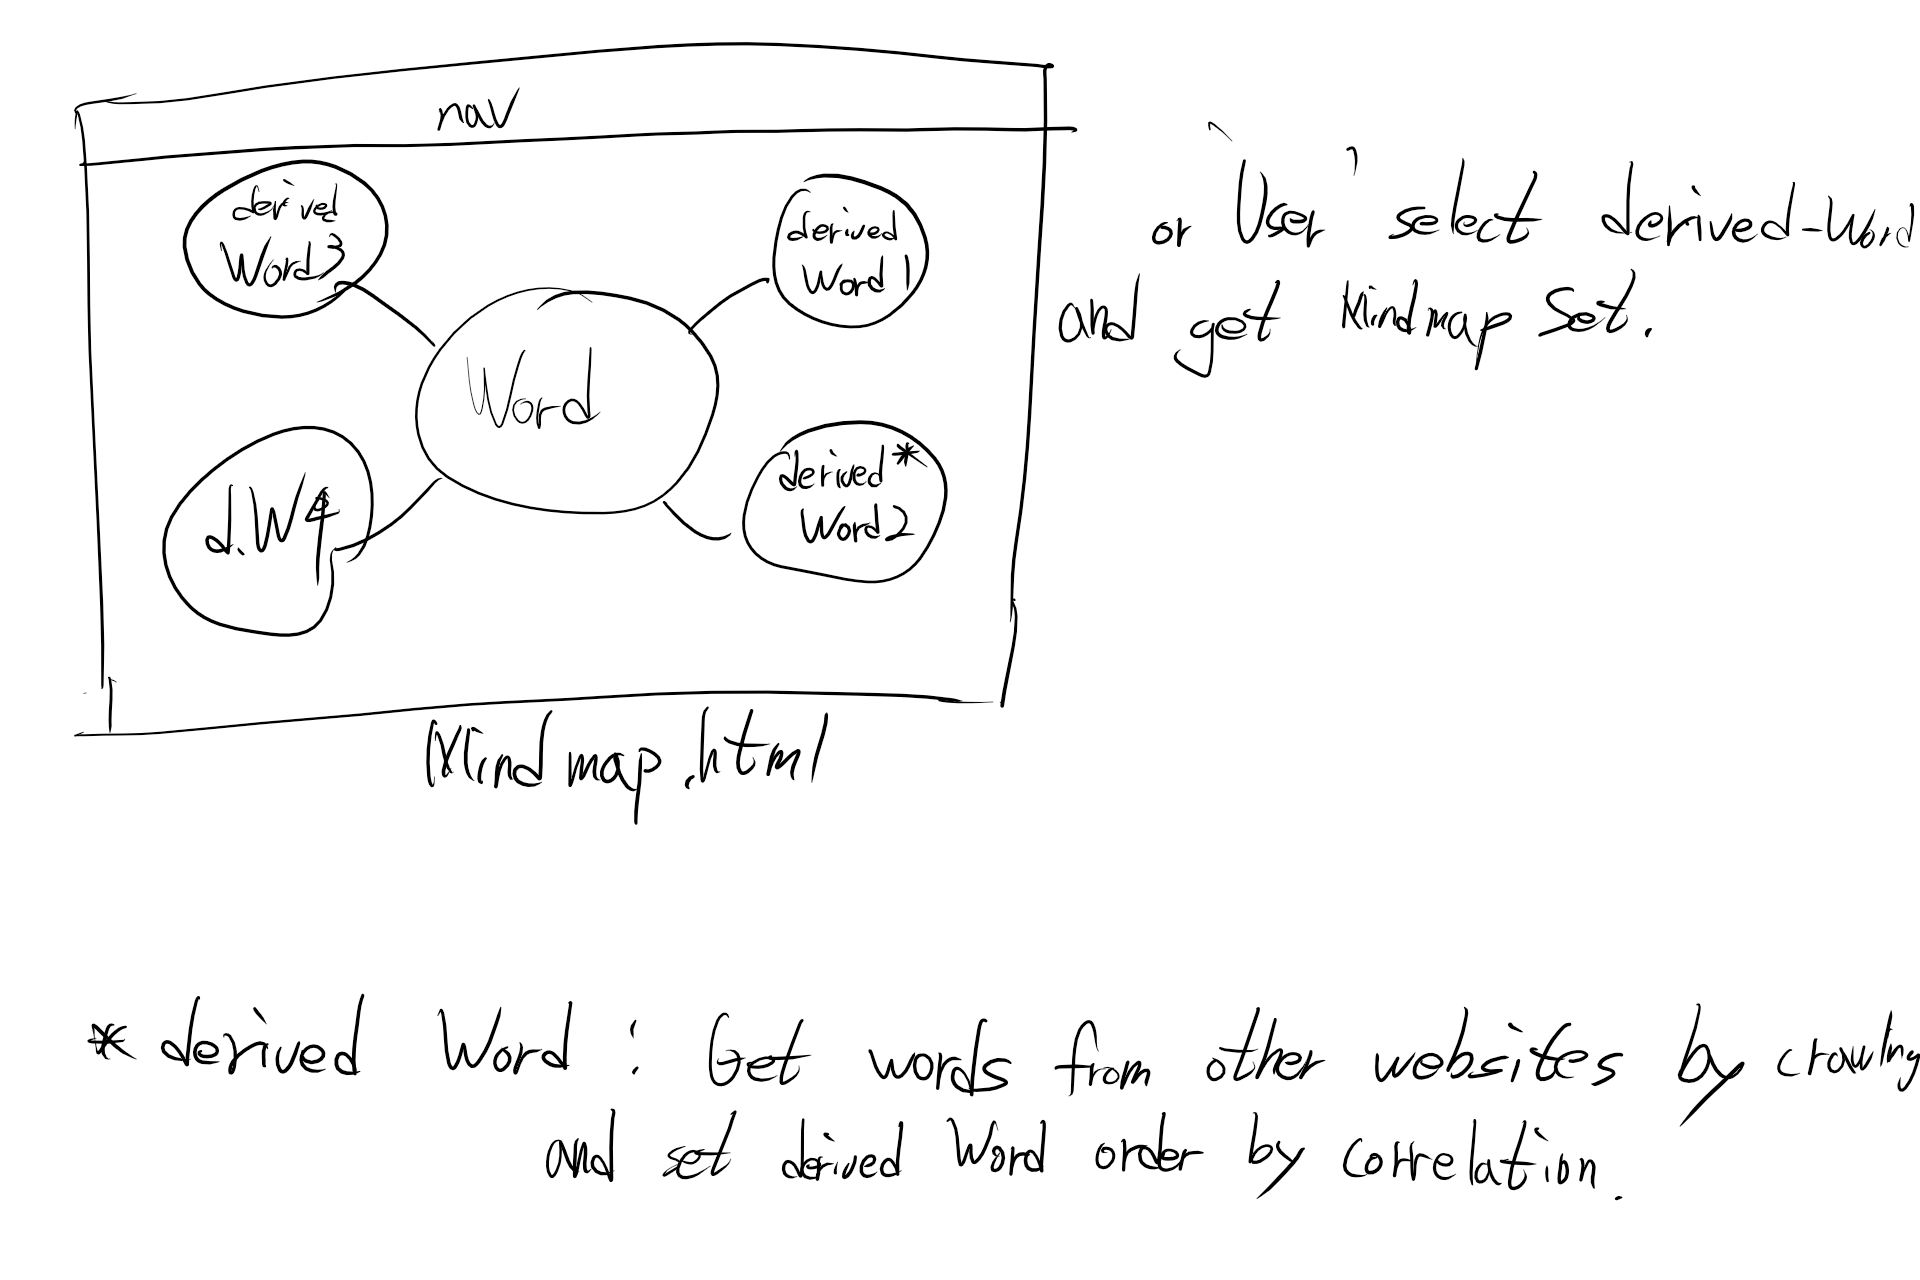 nav
derived
Word3
derived
Word 1
Word
d.W4
derived*
Word2
Mindmap.html
or 'User' select derived-Word
and get Mindmap Set.
* derived Word : Get words from other websites by crawling
and set derived Word order by correlation.